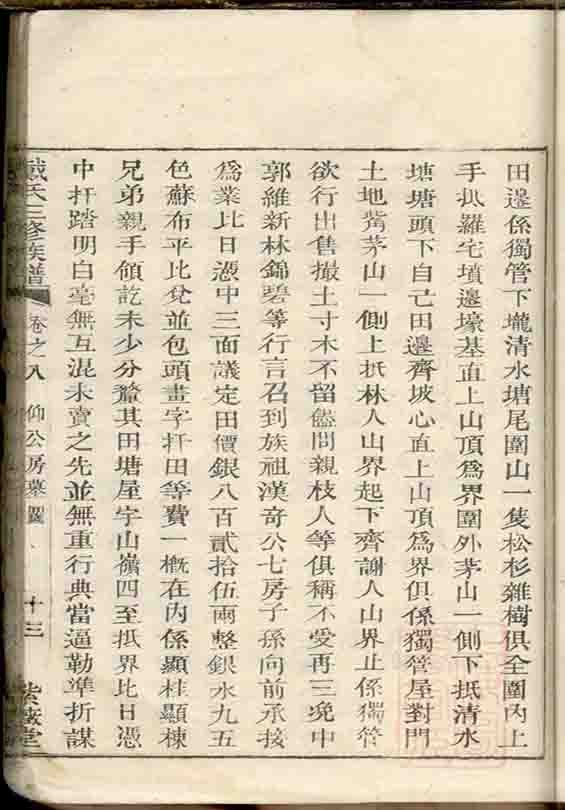 田邊係獨管下壠清水塘尾圍山一隻松杉雜樹俱全圍內上
手扒羅宅墳邊壕基直上山頂爲界圍外茅山一側下抵清水
塘塘頭下自亡田邊齊坡心直上山頂爲界俱係獨管屋對門
土地觜茅山一側上抵林人山界起下齊謝人山界止係獨管
欲行出售撮土寸木不留儘問親枝人等俱稱不受再三浼中
郭維新林錦碧等行言召到族祖漢奇公七房子孫向前承接
爲業比日憑中三面議定田價銀八百貳拾伍兩整銀水九五
色蘇布平比兌並包頭畫字扞田等費一概在內係顯桂顯棟
兄弟親手領訖未少分釐其田塘屋宇山嶺四至抵界比日憑
中扞踏明白毫無互混未賣之先並無重行典當逼勒準折謀
戴氏三修族譜 卷之八 仰公房墓圖 十三 紫薇堂